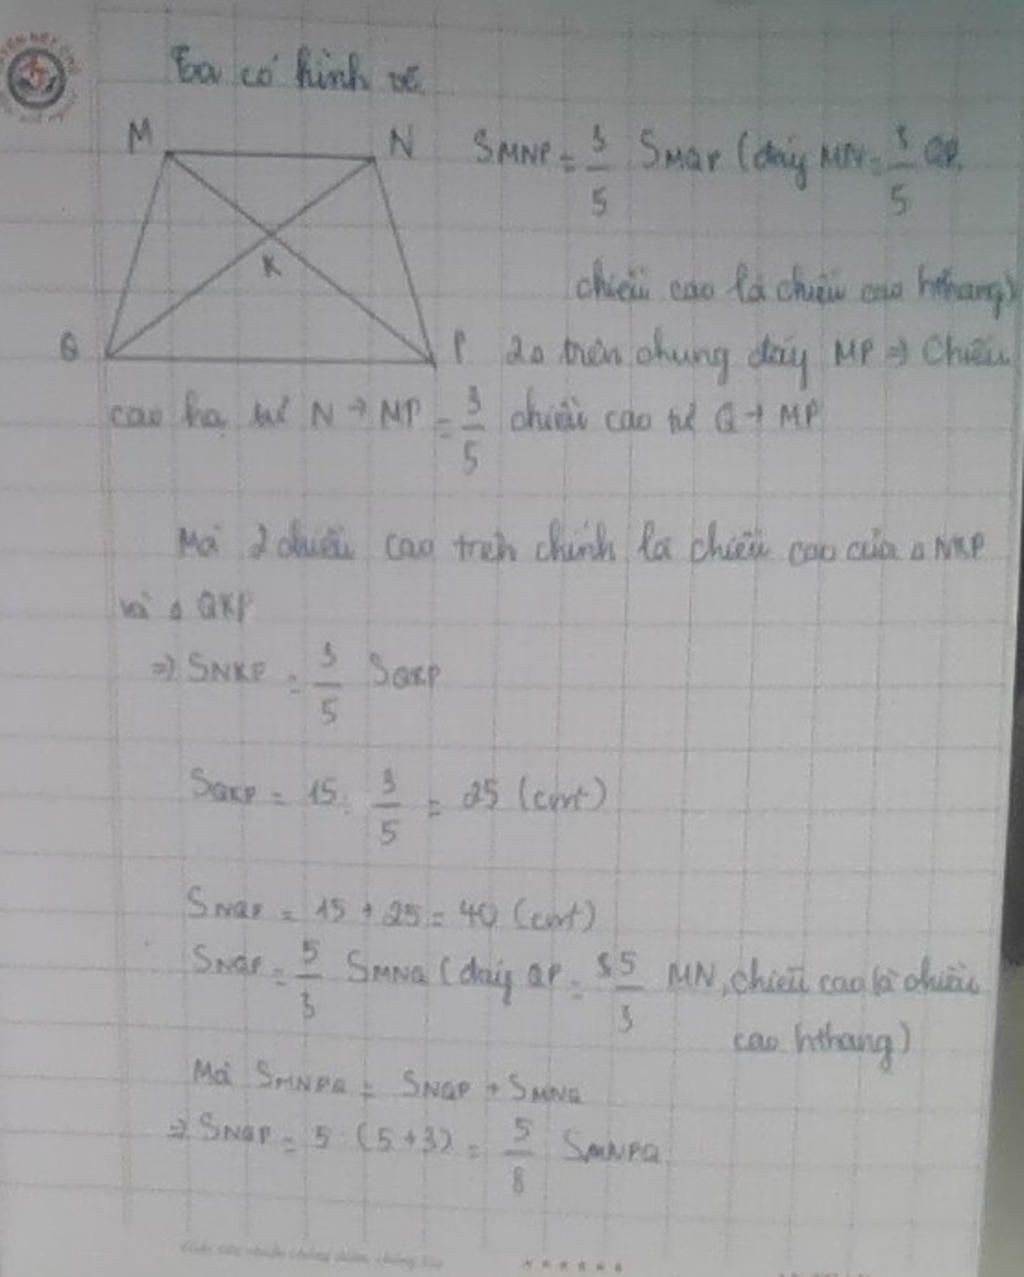 Ta có hình vẽ
M N SMNP = 3/5 SMQP (đáy MN = 3/5 QP,
chiều cao là chiều cao hthang)
K
Q P 2Δ trên chung đáy MP => Chiều
cao hạ từ N → MP = 3/5 chiều cao từ Q → MP
Mà 2 chiều cao trên chính là chiều cao của Δ NKP
và Δ QKP
=> SNKP = 3/5 SQKP
SQKP = 15 : 3/5 = 25 (cm²)
SNQP = 15 + 25 = 40 (cm²)
SNQP = 5/3 SMNQ (đáy QP = 5/3 MN, chiều cao là chiều
cao hthang)
Mà SMNPQ = SNQP + SMNQ
=> SNQP = 5 : (5+3) = 5/8 SMNPQ